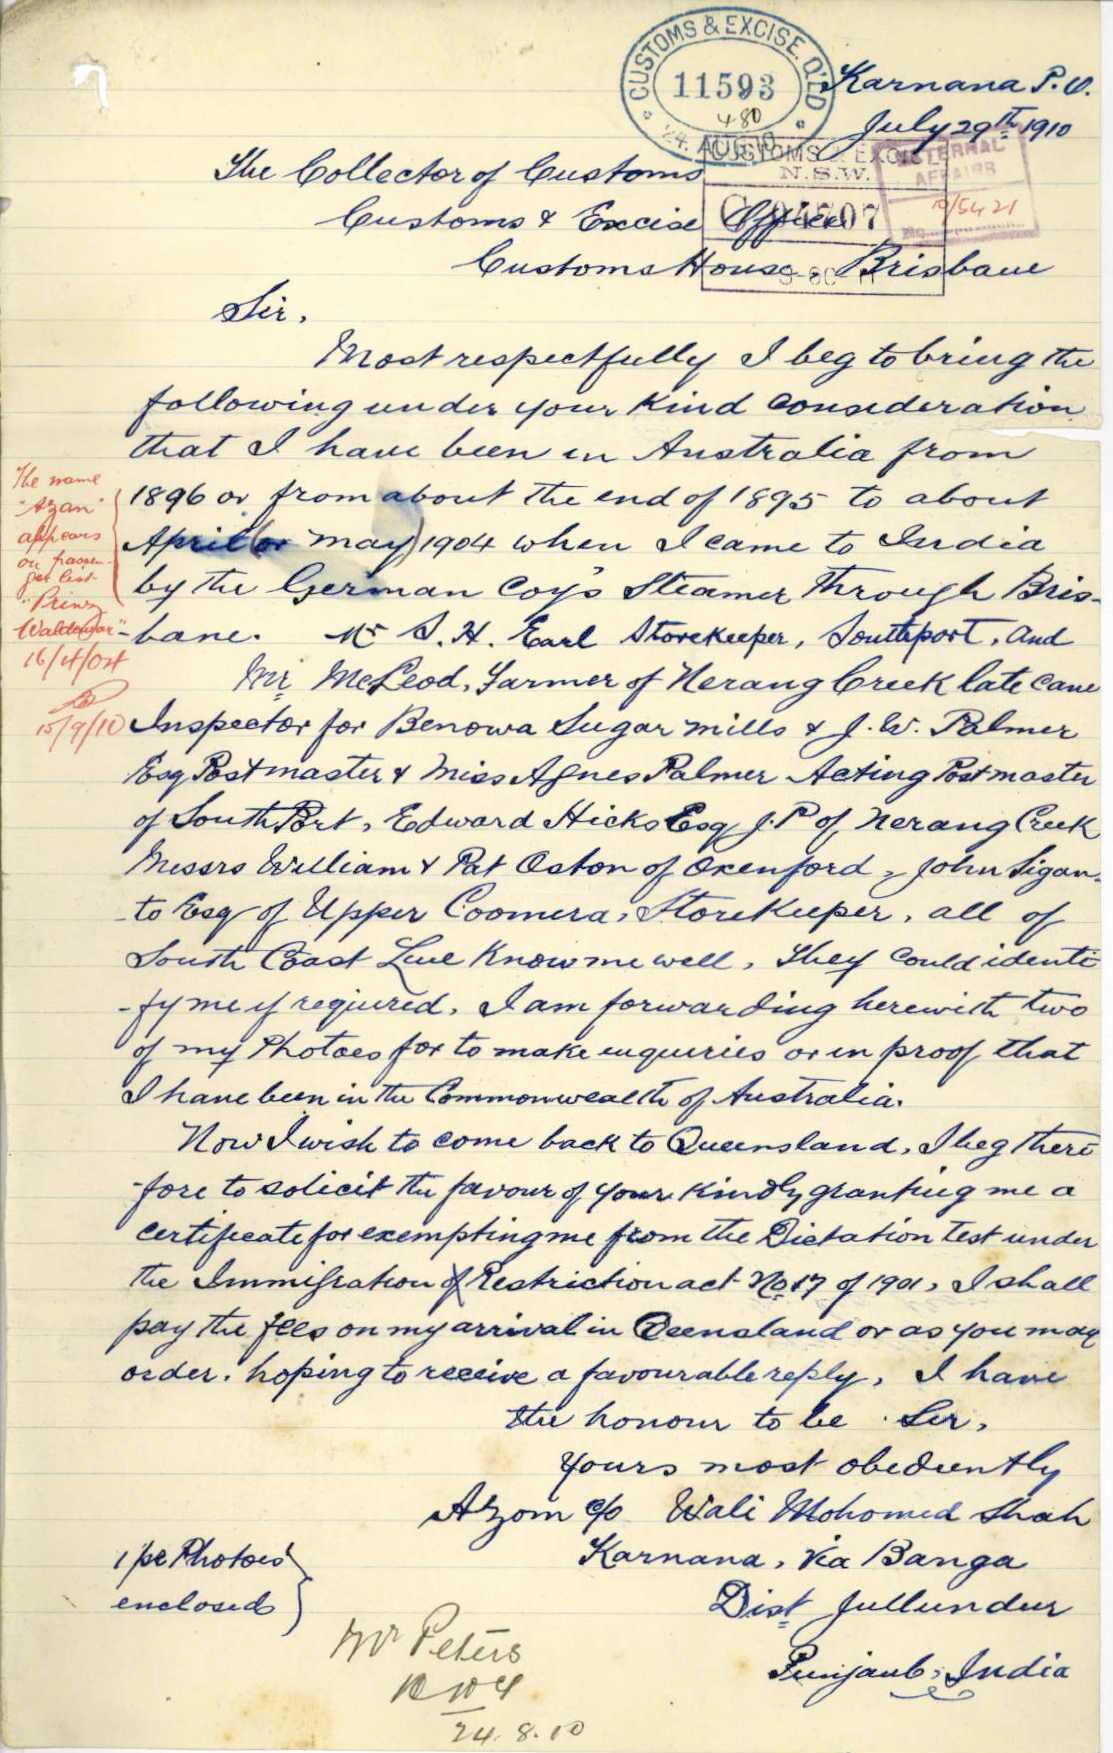 CUSTOMS & EXCISE. Q'LD
11593
480
24. AUG 10
Karnana P.O.
July 29th 1910
CUSTOMS & EXCISE
N.S.W.
EXTERNAL
AFFAIRS
10/5421
No.
The Collector of Customs
Customs & Excise Office
Customs House, Brisbane
Sir,
Most respectfully I beg to bring the
following under your kind consideration
that I have been in Australia from
1896 or from about the end of 1895 to about
April (or may) 1904 when I came to India
by the German Coy's Steamer through Bris-
-bane. Mr S. H. Earl Storekeeper, Southport, and
Mr McLeod, Farmer of Nerang Creek late Cane
Inspector for Benowa Sugar mills & J. W. Palmer
Esq Postmaster & Miss Agnes Palmer Acting Postmaster
of South Port, Edward Hicks Esq J.P of Nerang Creek
Messrs William & Pat Oston of Oxenford, John Sigan-
-to Esq of Upper Coomera, Storekeeper, all of
South Coast Line know me well, They could identi
-fy me if required. I am forwarding herewith two
of my Photoes for to make enquiries or in proof that
I have been in the Commonwealth of Australia.
Now I wish to come back to Queensland, I beg there
-fore to solicit the favour of your kindly granting me a
certificate for exempting me from the Dictation test under
the Immigration of Restriction act No 17 of 1901, I shall
pay the fees on my arrival in Queensland or as you may
order. hoping to receive a favourable reply, I have
the honour to be Sir,
Yours most obediently
Azom c/o Wali Mohomed Shah
Karnana, Via Banga
Dist Jullundur
Punjaub, India
1 pr Photoes
enclosed
The name
"Azan"
appears
on passen-
ger list
"Prinz
Waldemar"
16/4/04
15/9/10
Mr Peters
24.8.10